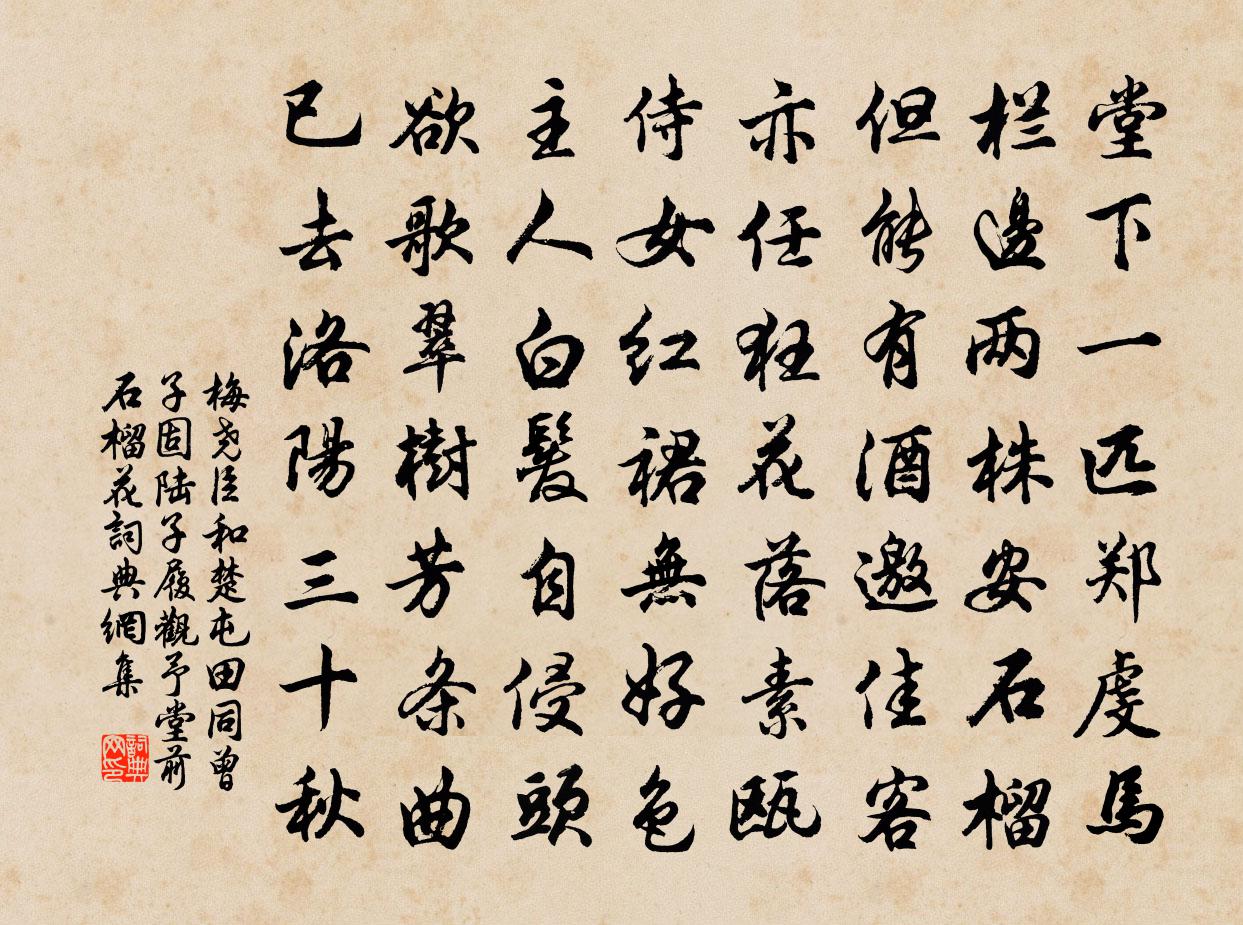 堂下一匹郑虔馬
栏邊两株安石榴
但能有酒邀佳客
亦任狂花落素瓯
侍女红裙無好色
主人白髮自侵頭
欲歌翠樹芳条曲
已去洛陽三十秋
梅尧臣和楚屯田同曾
子固陆子履觀予堂前
石榴花詞典網集
詞典
网印